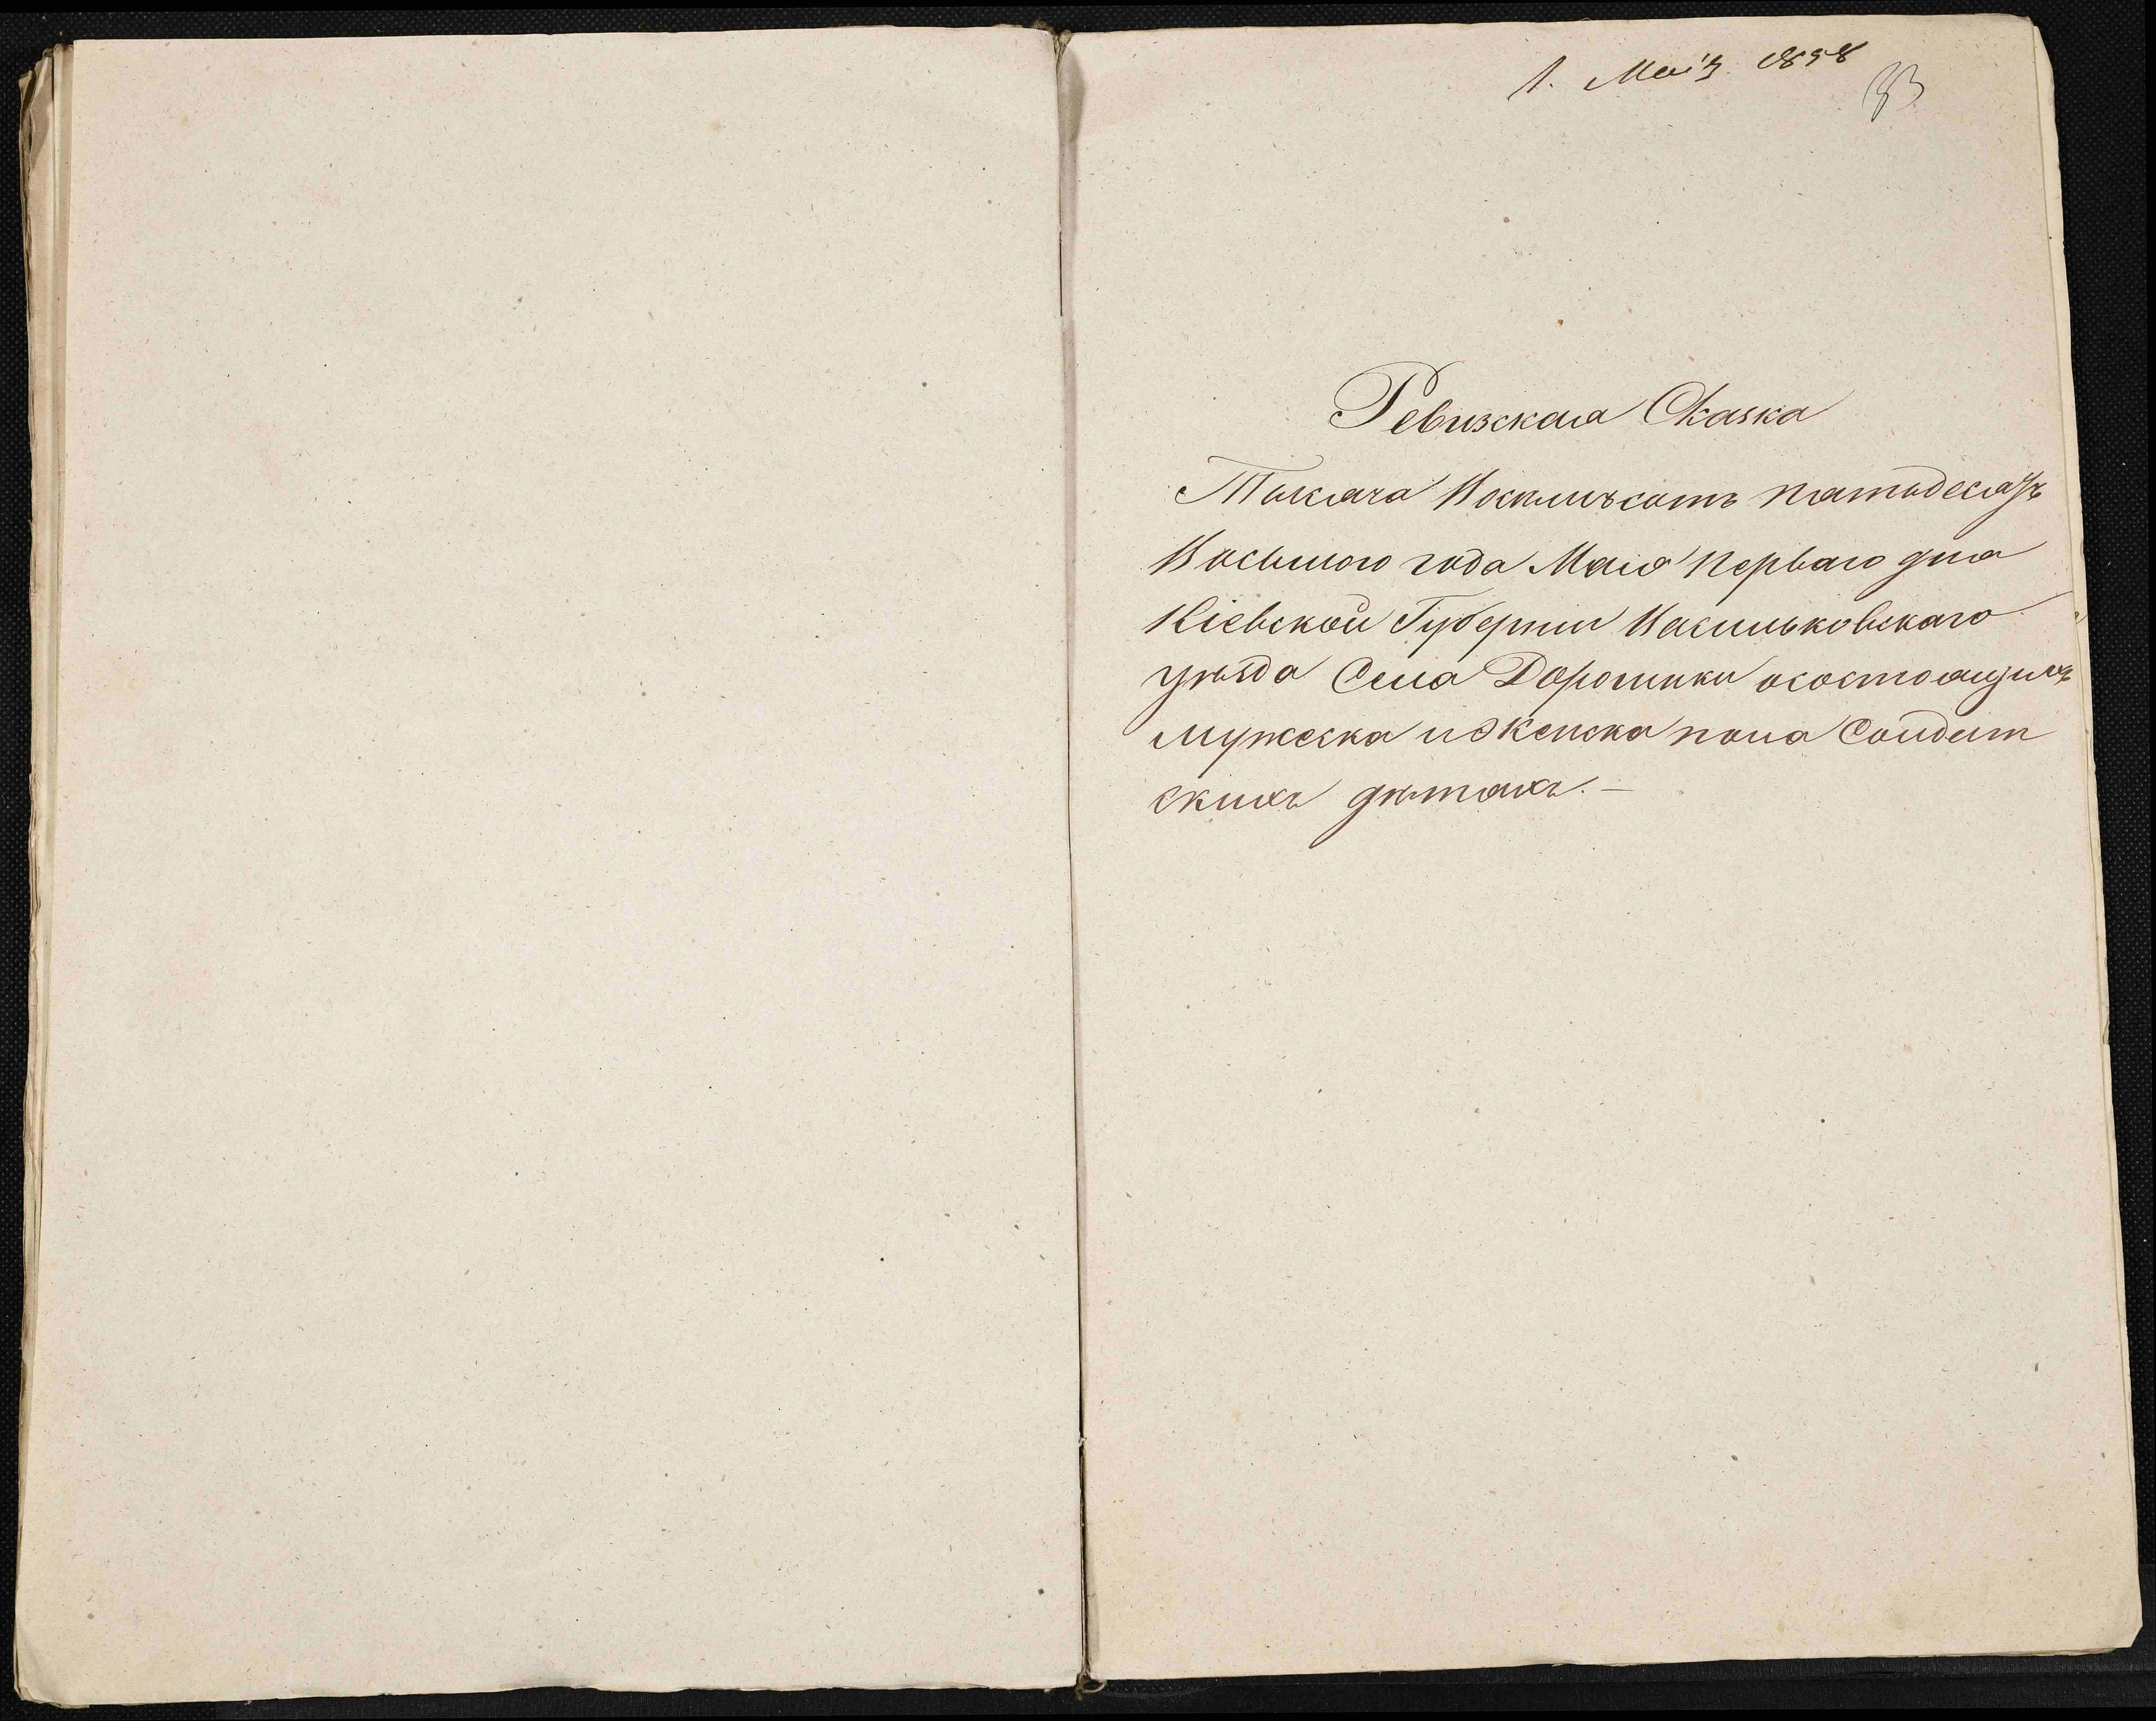 1. Маія 1858
33
Ревизская Сказка
Тысяча Восемьсотъ пятьдесятъ
Восьмого года Маія перваго дня
Кіевской Губерніи Васильковскаго
уѣзда Села Дорогинки осостоящихъ
мужеска и женска пола Солдат
скихъ дѣтяхъ. —